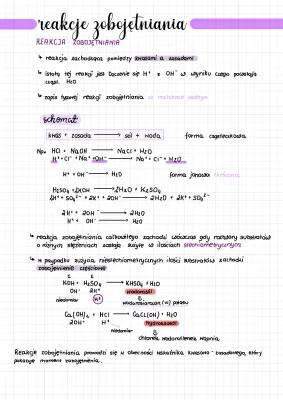 reakcje zobojętniania
REAKCJA ZOBOJĘTNIANIA
↳ reakcja zachodząca pomiędzy kwasami a zasadami
↳ istotą tej reakcji jest łączenie się H⁺ z OH⁻ w wyniku czego powstają
cząst. H₂O
↳ zapis typowej reakcji zobojętniania
schemat
kwas + zasada → sól + woda forma cząsteczkowa
Np. HCl + NaOH → NaCl + H₂O
H⁺ + Cl⁻ + Na⁺ + OH⁻ → Na⁺ + Cl⁻ + H₂O
H⁺ + OH⁻ → H₂O forma jonowa skrócona
H₂SO₄ + 2KOH → 2H₂O + K₂SO₄
2H⁺ + SO₄²⁻ + 2K⁺ + 2OH⁻ → 2H₂O + 2K⁺ + SO₄²⁻
2H⁺ + 2OH⁻ → 2H₂O
H⁺ + OH⁻ → H₂O
↳ reakcja zobojętniania całkowitego zachodzi wówczas gdy roztwory substratów
o różnych stężeniach zostają zużyte w ilościach stechiometrycznych
↳ w przypadku zużycia niestechiometrycznych ilości substratów zachodzi
zobojętnienie częściowe
KOH + H₂SO₄ → KHSO₄ + H₂O
OH⁻ 2H⁺ wodorosól
niedomiar H⁺ wodorosiarczan (VI) potasu
Ca(OH)₂ + HCl → CaCl(OH) + H₂O
2OH⁻ H⁺ hydroksosól
niedomiar chlorek wodorotlenek wapnia
Reakcje zobojętniania prowadzi się w obecności wskaźnika kwasowo-zasadowego, który
pokazuje moment zobojętnienia.